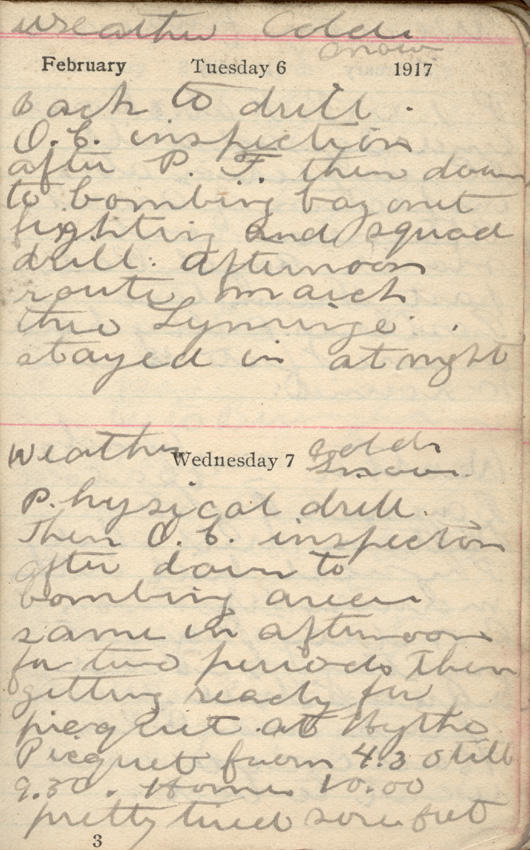 Weather Cold
snow
February Tuesday 6 1917
Back to drill.
O.C. inspection
after P. T. then down
to bombing bayonet
fighting and squad
drill. afternoon
route march
thro Lyminge.
stayed in at night
Weather cold
Wednesday 7 snow.
Physical drill.
Then O.C. inspection
after down to
bombing area
same in afternoon
for two periods then
getting ready for
picquit at Hythe
Picquet from 4.30 till
9.30. Home 10.00
pretty tired sore feet
3